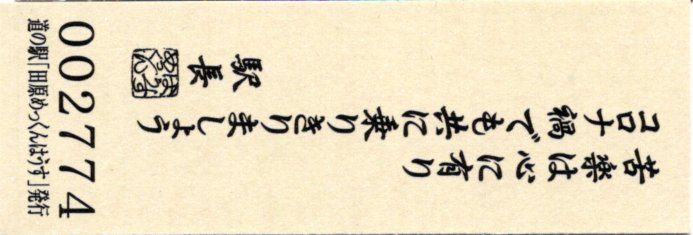 苦楽は心に有り
コロナ鍋でも共に乗りきりましょう
駅長
002774
道の駅「田原めっくんはうす」発行